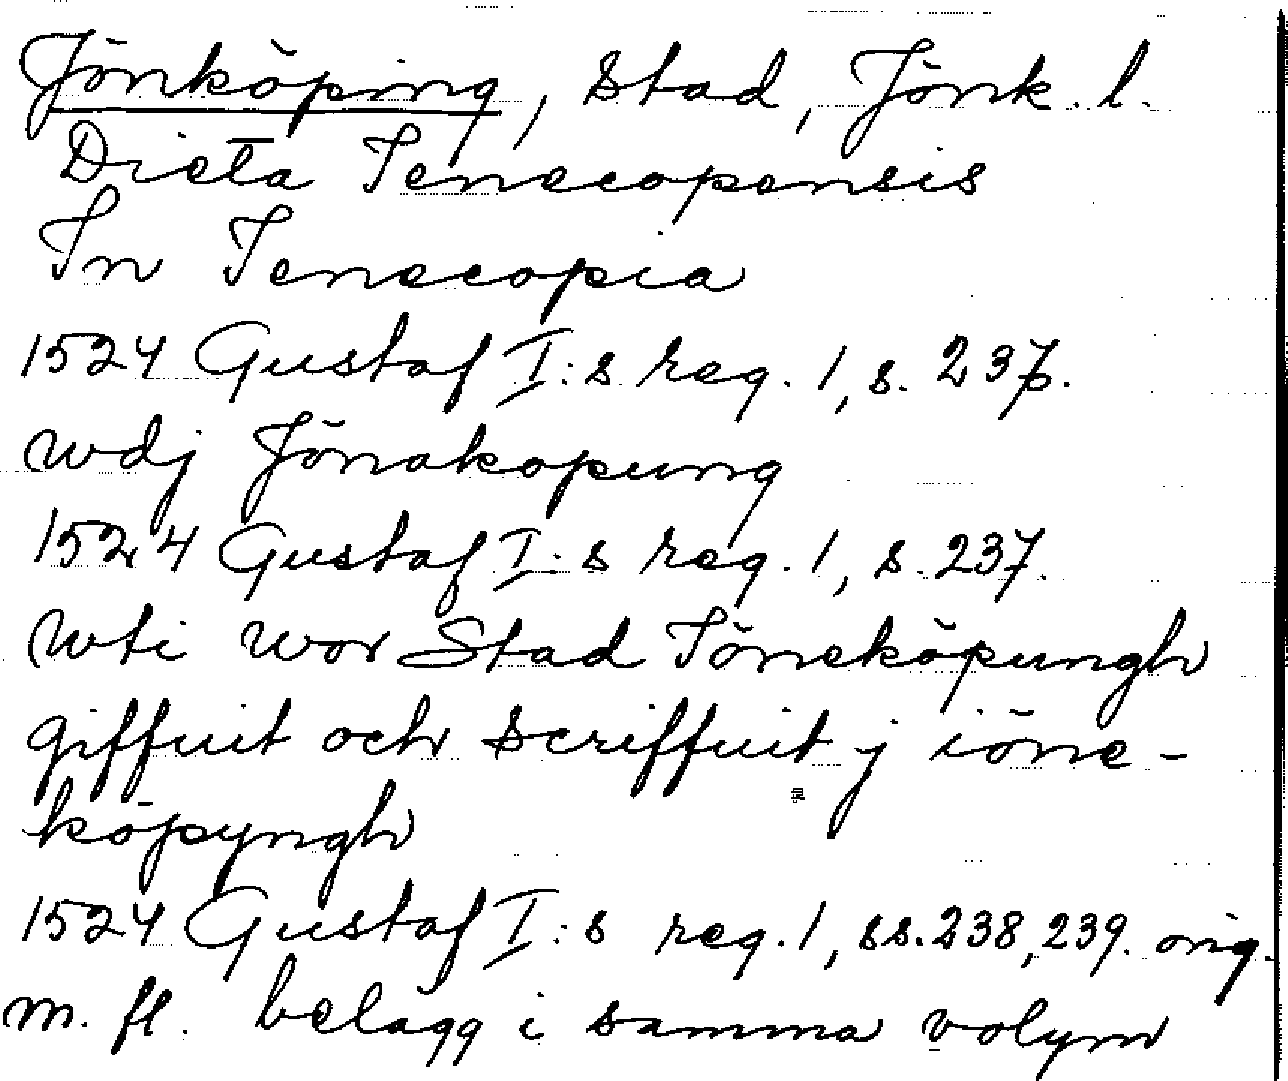 Jönköping, stad, Jönk. l.
Dieta Ienecopensis
In Ienecopia
1524 Gustaf I:s reg. 1, s. 237.
wdj Jönakopung
1524 Gustaf I:s reg. 1, s. 237.
wti wor Stad Iöneköpungh
giffuit och scriffuit j iöne-
köpyngh
1524 Gustaf I:s reg. 1, ss. 238, 239. orig.
m. fl. belägg i samma volym